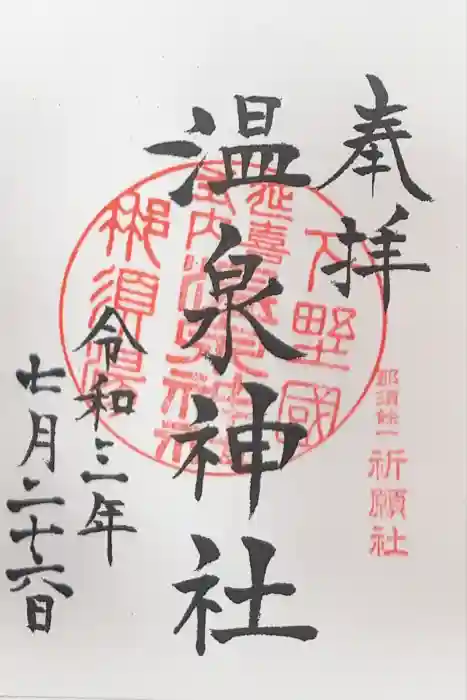 奉拝
那須餘一
祈願社
下野國
延喜式内温泉神社
那須湯
温泉神社
令和三年
七月二十六日